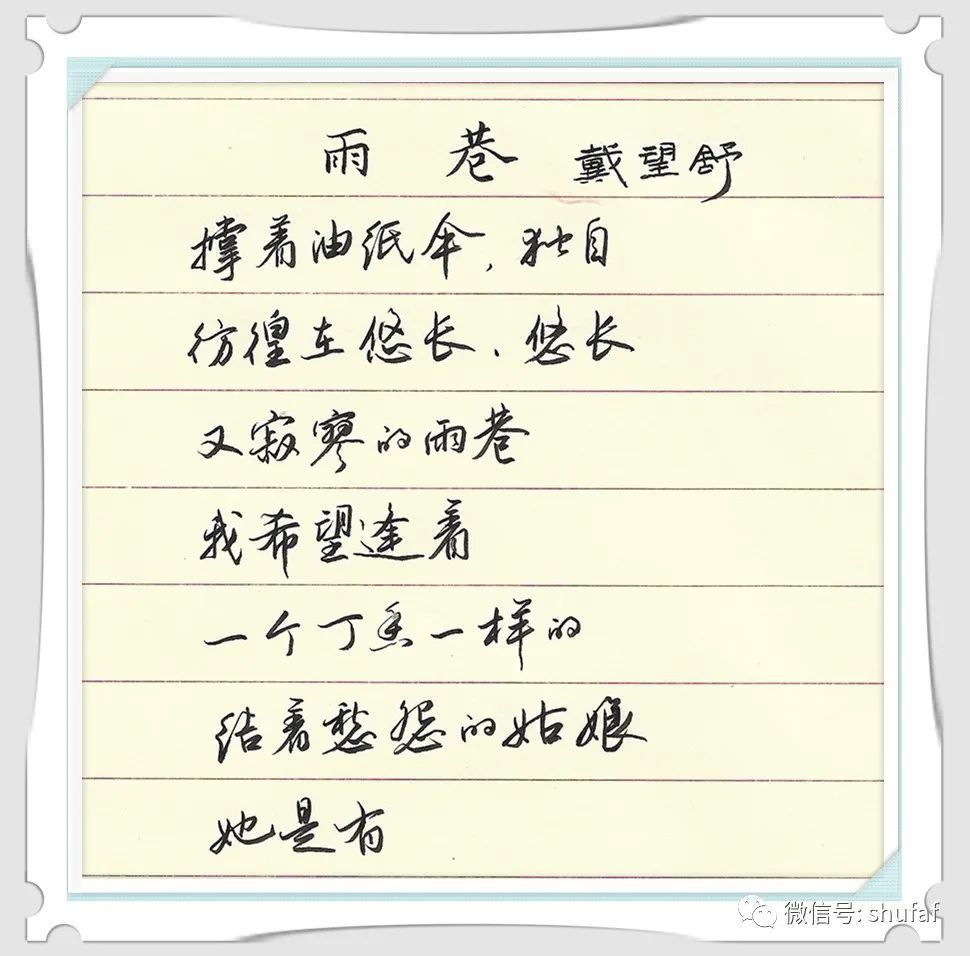 雨 巷 戴望舒
撑着油纸伞，独自
彷徨在悠长、悠长
又寂寥的雨巷
我希望逢着
一个丁香一样的
结着愁怨的姑娘
她是有
微信号: shufaf